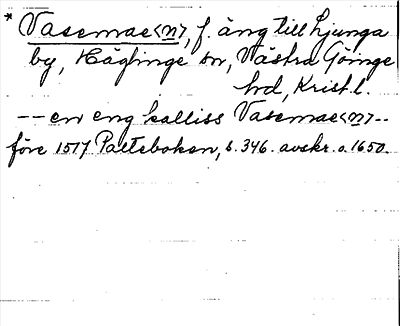 * Vasemae<n>, f. äng till Ljunga
by, Häglinge sn, Västra Göinge
hd, Krist. l.
-- en eng kalliss Vasemae<n> --
före 1517 Palteboken, s. 346. avskr. o. 1650.